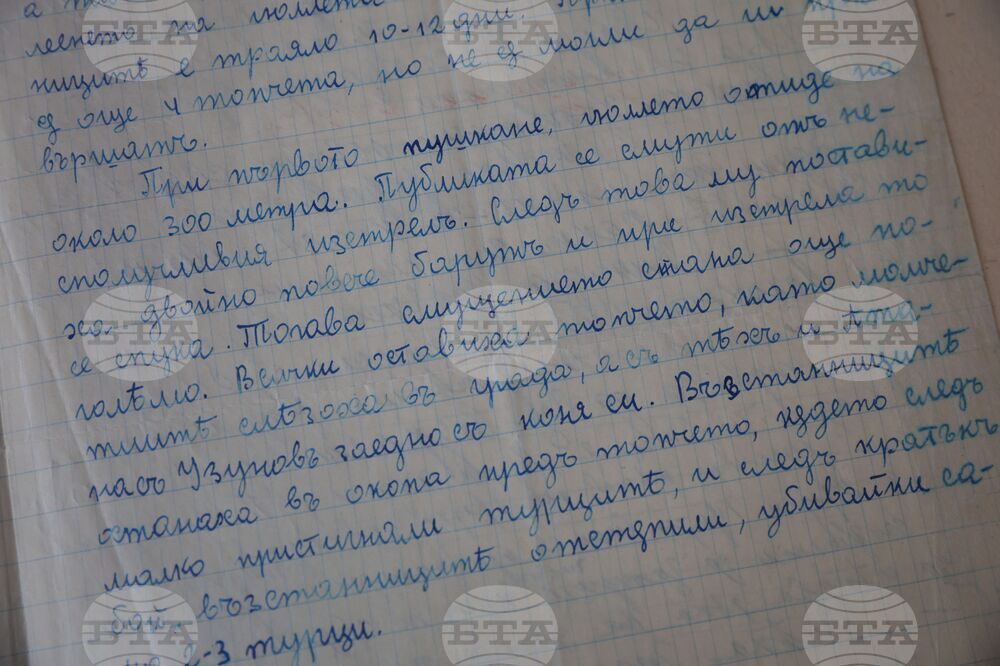 лението на гюллета
ницитѣ е траяло 10-12 дни.
ѫ още 4 топчета, но не ѫ могли да ги
вършатъ.
При първото пушкане, гюллето отиде на
около 300 метра. Публиката се смути отъ не-
сполучливия изстрелъ. Следъ това му постави-
ха двойно повече барутъ и при изстрела то
се спука. Тогава смущението стана още по-
голѣмо. Всички оставиха топчето, като момче-
тиитѣ слѣзоха въ града, а съ тѣхъ и Ата-
насъ Узуновъ заедно съ коня си. Възстанницитѣ
останаха въ окопа предъ топчето, кѫдето следъ
малко пристигнали турцитѣ, и следъ кратъкъ
бой, възстанницитѣ отстѫпили, убивайки са-
мо 2-3 турци.
БТА